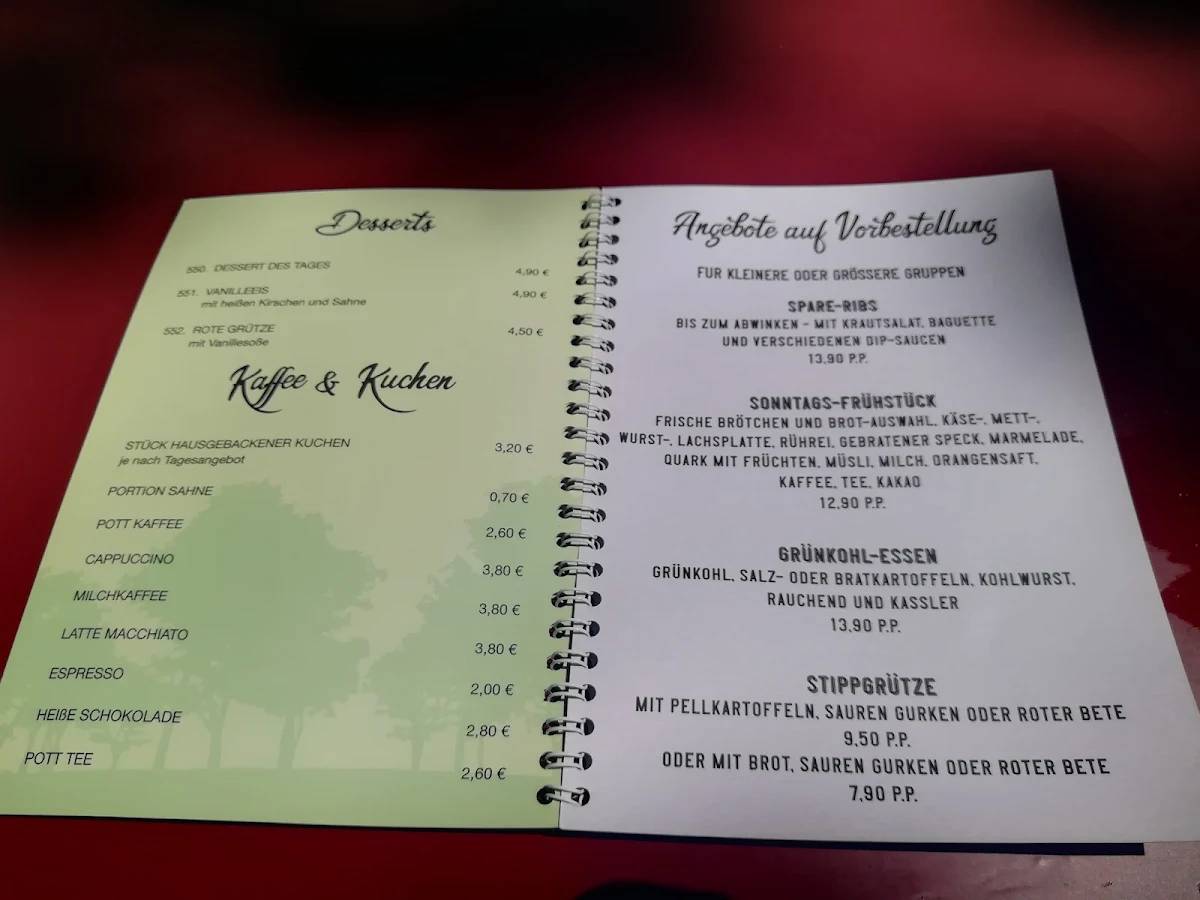 Desserts
550. DESSERT DES TAGES 4,90 €
551. VANILLEEIS 4,90 €
mit heißen Kirschen und Sahne
552. ROTE GRÜTZE 4,50 €
mit Vanillesoße
Kaffee & Kuchen
STÜCK HAUSGEBACKENER KUCHEN 3,20 €
je nach Tagesangebot
PORTION SAHNE 0,70 €
POTT KAFFEE 2,60 €
CAPPUCCINO 3,80 €
MILCHKAFFEE 3,80 €
LATTE MACCHIATO 3,80 €
ESPRESSO 2,00 €
HEIßE SCHOKOLADE 2,80 €
POTT TEE 2,60 €
Angebote auf Vorbestellung
FÜR KLEINERE ODER GRÖSSERE GRUPPEN
SPARE-RIBS
BIS ZUM ABWINKEN - MIT KRAUTSALAT, BAGUETTE
UND VERSCHIEDENEN DIP-SAUCEN
13,90 P.P.
SONNTAGS-FRÜHSTÜCK
FRISCHE BRÖTCHEN UND BROT-AUSWAHL, KÄSE-, METT-,
WURST-, LACHSPLATTE, RÜHREI, GEBRATENER SPECK, MARMELADE,
QUARK MIT FRÜCHTEN, MÜSLI, MILCH, ORANGENSAFT,
KAFFEE, TEE, KAKAO
12,90 P.P.
GRÜNKOHL-ESSEN
GRÜNKOHL, SALZ- ODER BRATKARTOFFELN, KOHLWURST,
RAUCHEND UND KASSLER
13,90 P.P.
STIPPGRÜTZE
MIT PELLKARTOFFELN, SAUREN GURKEN ODER ROTER BETE
9,50 P.P.
ODER MIT BROT, SAUREN GURKEN ODER ROTER BETE
7,90 P.P.